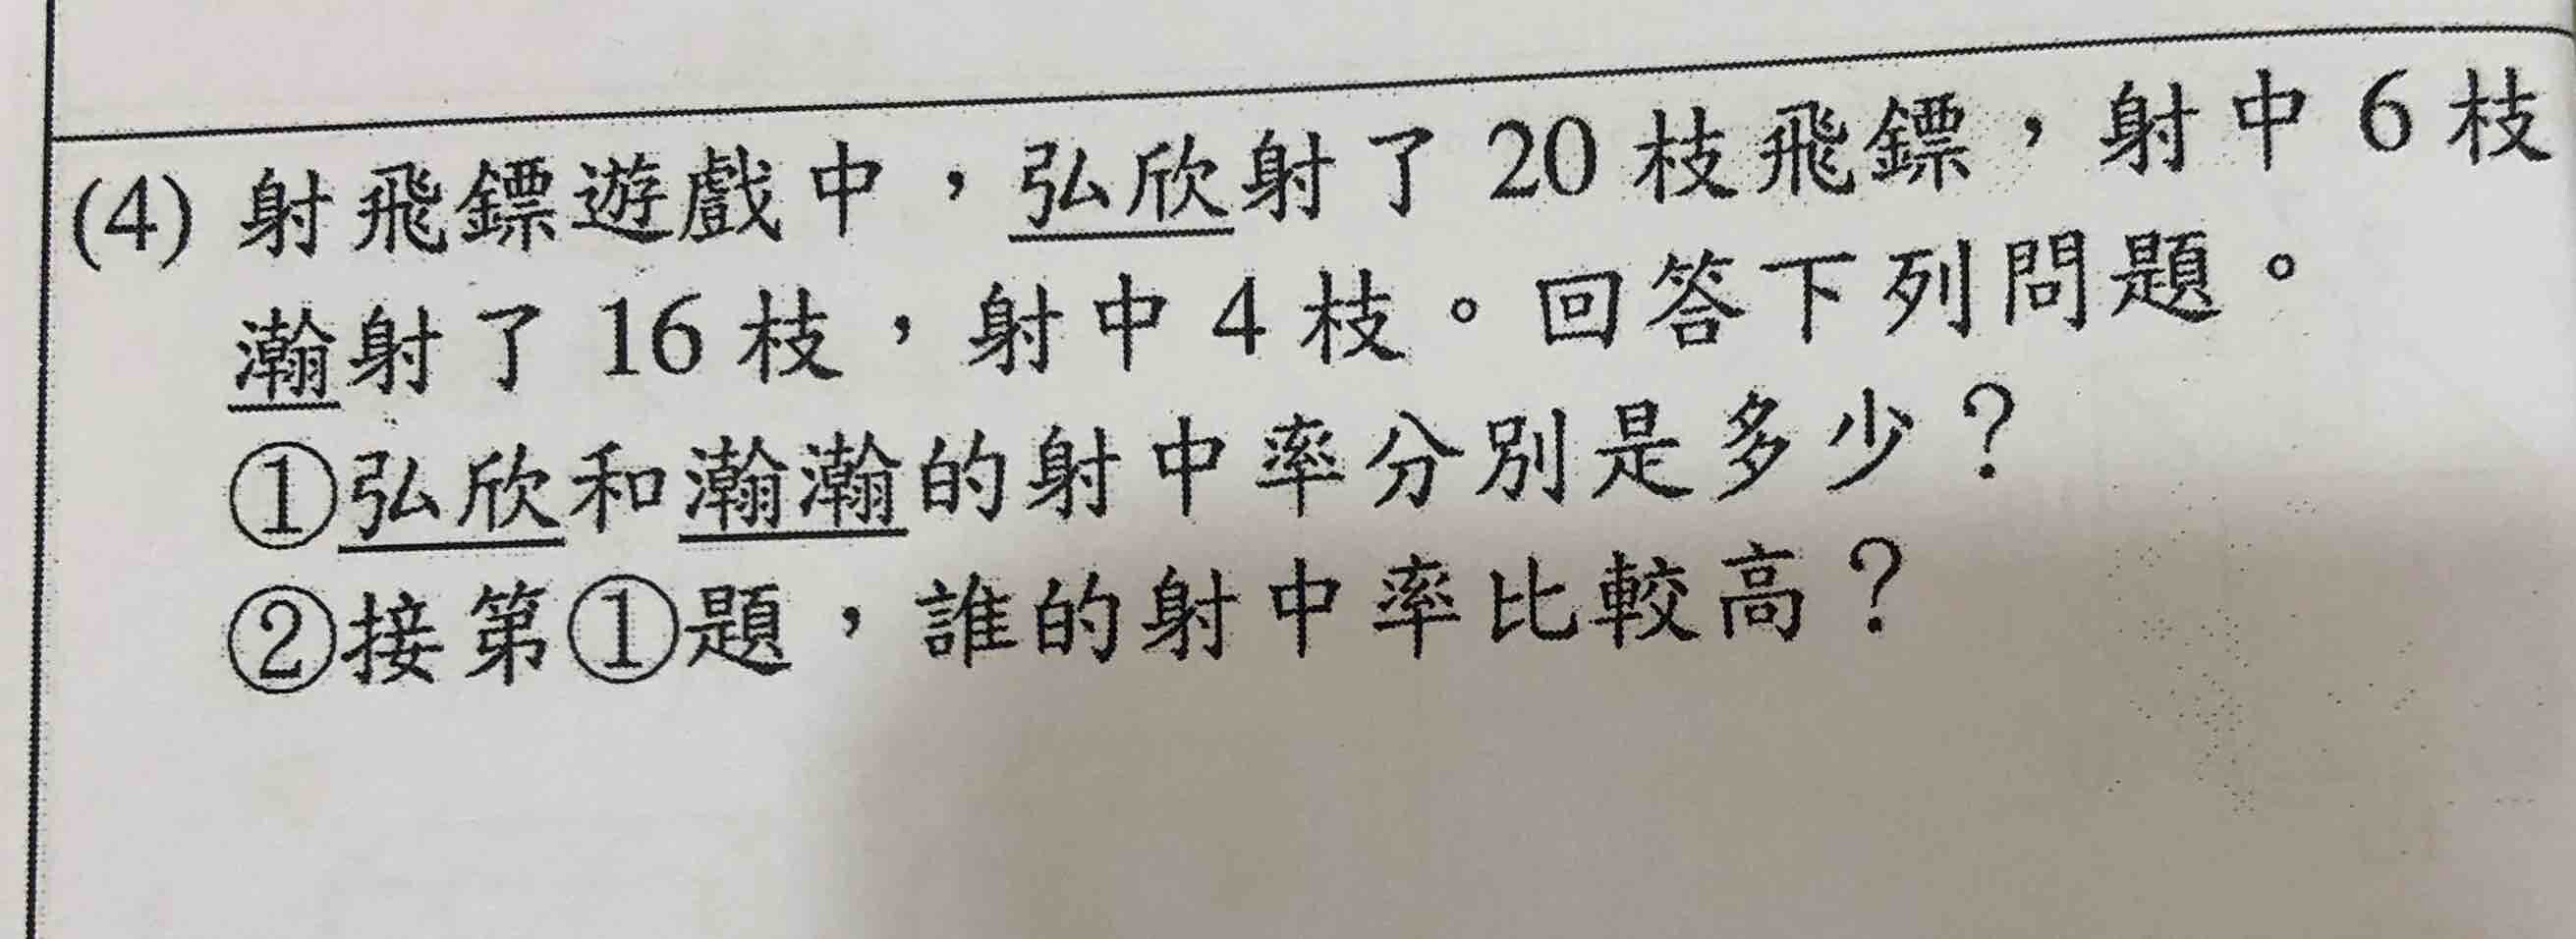 (4) 射飛鏢遊戲中，弘欣射了 20 枝飛鏢，射中 6 枝
瀚射了 16 枝，射中 4 枝。回答下列問題。
①弘欣和瀚瀚的射中率分別是多少？
②接第①題，誰的射中率比較高？